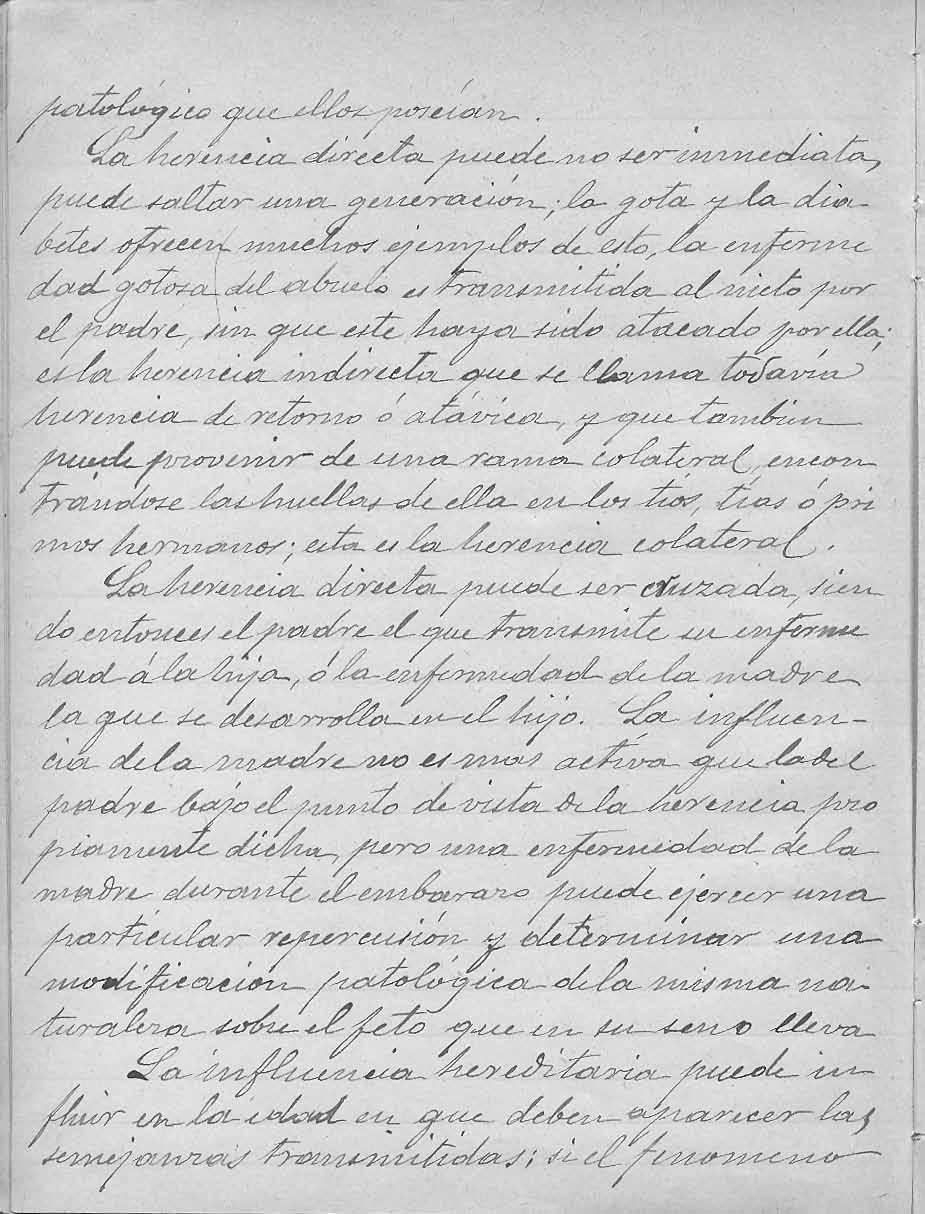 patológico que ellos poseían.
La herencia directa puede no ser inmediata,
puede saltar una generación; la gota y la dia-
betes ofrecen muchos ejemplos de esto, la enferme
dad gotosa del abuelo es transmitida al nieto por
el padre, sin que este haya sido atacado por ella;
es la herencia indirecta que se llama todavía
herencia de retorno ó atávica, y que tambien
puede provenir de una rama colateral, encon
trándose las huellas de ella en los tíos, tías ó pri
mos hermanos; esta es la herencia colateral.
La herencia directa puede ser cruzada, sien
do entonces el padre el que transmite su enferme
dad á la hija, ó la enfermedad de la madre
la que se desarrolla en el hijo. La influen-
cia de la madre no es mas activa que la del
padre bajo el punto de vista de la herencia pro
piamente dicha, pero una enfermedad de la
madre durante el embarazo puede ejercer una
particular repercusión y determinar una
modificacion patológica de la misma na-
turaleza sobre el feto que en su seno lleva
La influencia hereditaria puede in
fluir en la edad en que deben aparecer las
semejanzas transmitidas; si el fenomeno